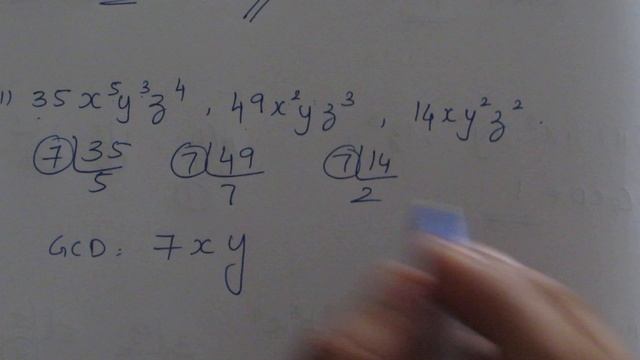 1) 35x⁵y³z⁴ , 49x²yz³ , 14xy²z² .
7 35 7 49 7 14
5 7 2
GCD: 7xy